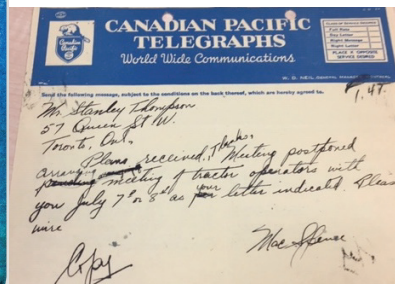 CANADIAN PACIFIC
TELEGRAPHS
World Wide Communications
Canadian
Pacific
CLASS OF SERVICE DESIRED
Full Rate
Day Letter
Night Message
Night Letter
PLACE X OPPOSITE
SERVICE DESIRED
W. D. NEIL, GENERAL MANAGER
Send the following message, subject to the conditions on the back thereof, which are hereby agreed to.
1.47.
Mr. Stanley Thompson
57 Queen St W.
Toronto, Ont.
Plans received, Thanks. Meeting postponed
arrange meeting of tractor operators with
you July 7th or 8th as your letter indicated. Please
wire
Mac Spence
Copy